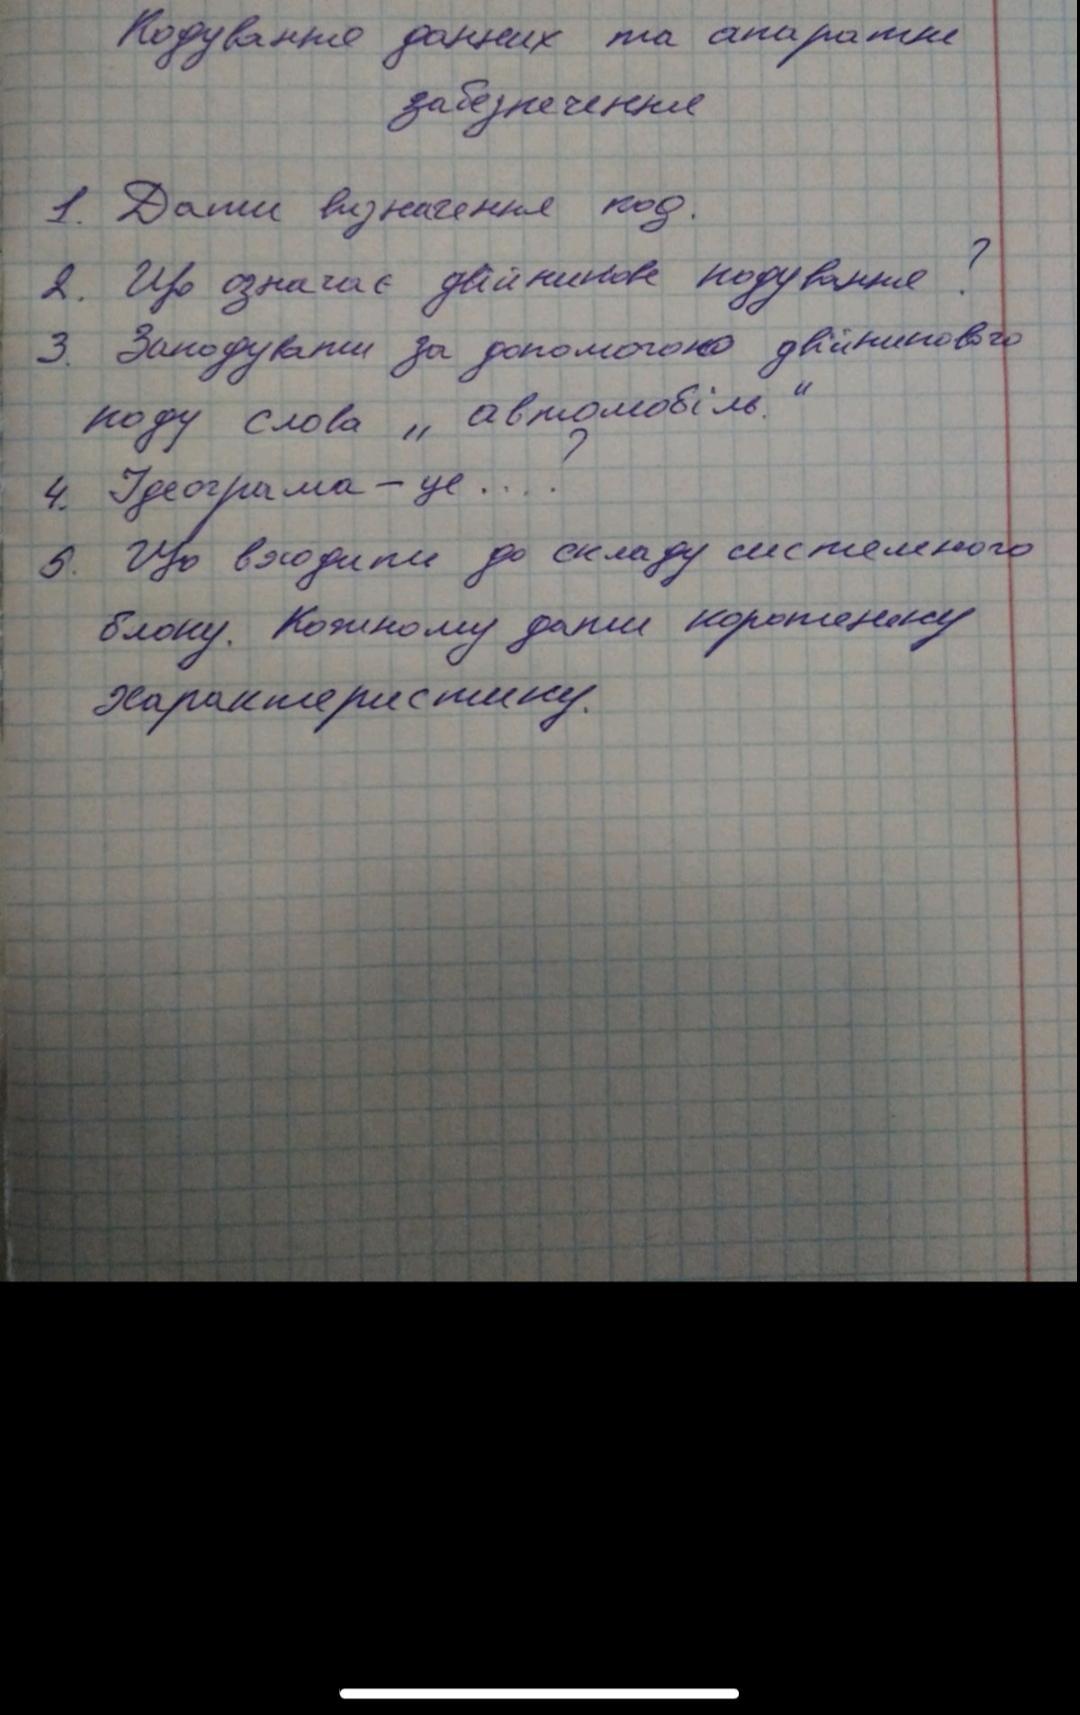 Кодування данних та апаратне
забезпечення
1. Дати визначення код.
2. Що означає двійникове кодування?
3. Закодувати за допомогою двійникового
коду слова „автомобіль."
4. Ідеограма – це ....?
5. Що входить до складу системного
блоку. Кожному дати коротеньку
характеристику.